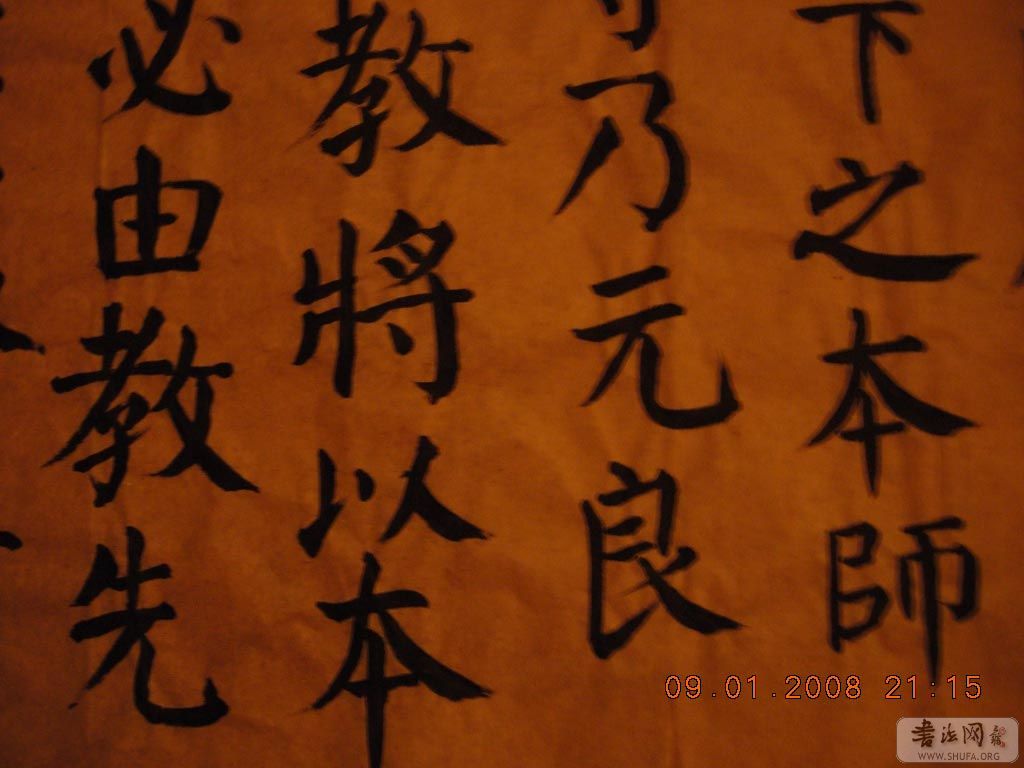 下之本師
乃元良
教將以本
必由教先
09.01.2008 21:15
書法网
WWW.SHUFA.ORG